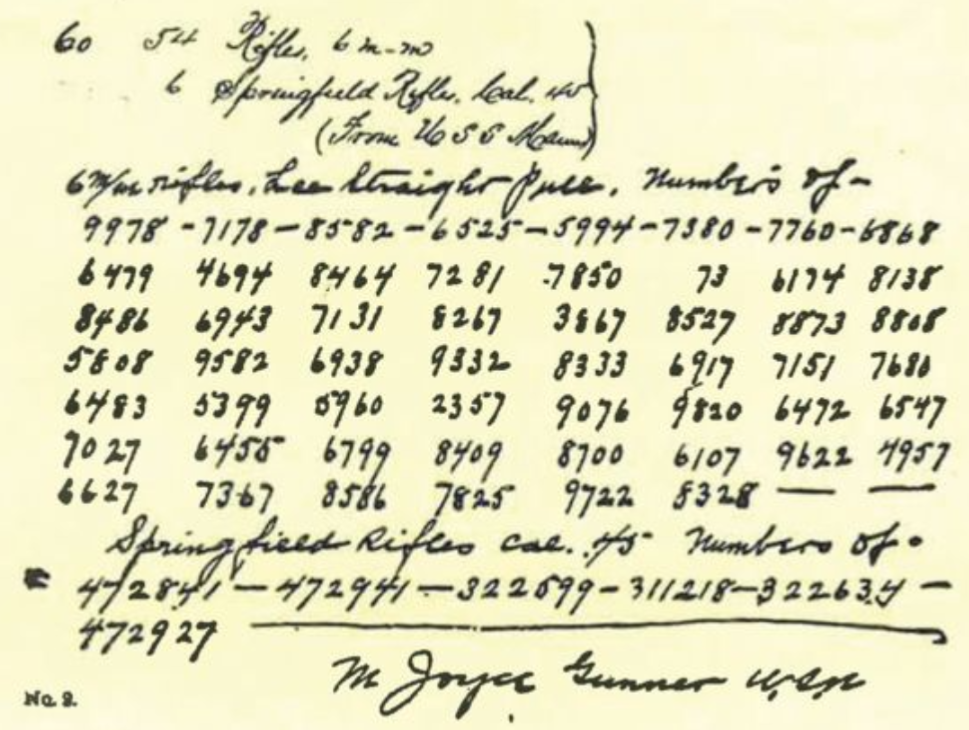 60 54 Rifles, 6 m-m
6 Springfield Rifles. Cal. 45
(From U S S Maine)
6 m/m rifles, Lee Straight Pull, Numbers of -
9978 - 7178 - 8582 - 6525 - 5994 - 7380 - 7760 - 6868
6479 4694 8464 7281 7850 73 6174 8138
8486 6943 7131 8267 3867 8527 8873 8808
5808 9582 6938 9332 8333 6917 7151 7680
6483 5399 5960 2357 9076 9820 6472 6547
7027 6455 6799 8409 8700 6107 9622 4957
6627 7367 8586 7825 9722 8328 — —
Springfield Rifles Cal. 45 Numbers of -
472841 - 472941 - 322599 - 311218 - 322634 -
472927
M Joyce Gunner U.S.N
No 2.